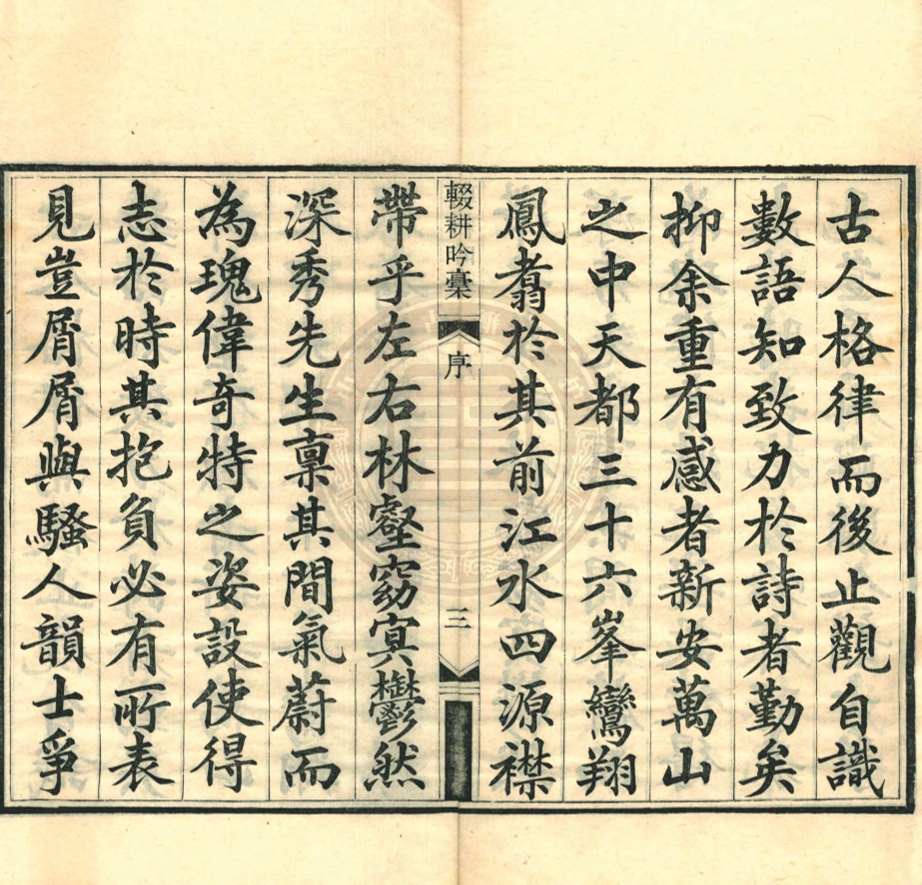 古人格律而後止觀自識
數語知致力於詩者勤矣
抑余重有感者新安萬山
之中天都三十六峯鸞翔
鳳翥於其前江水四源襟
輟耕吟稾
序
三
帶乎左右林壑窈冥鬱然
深秀先生稟其間氣蔚而
為瑰偉奇特之姿設使得
志於時其抱負必有所表
見豈屑屑與騷人韻士爭